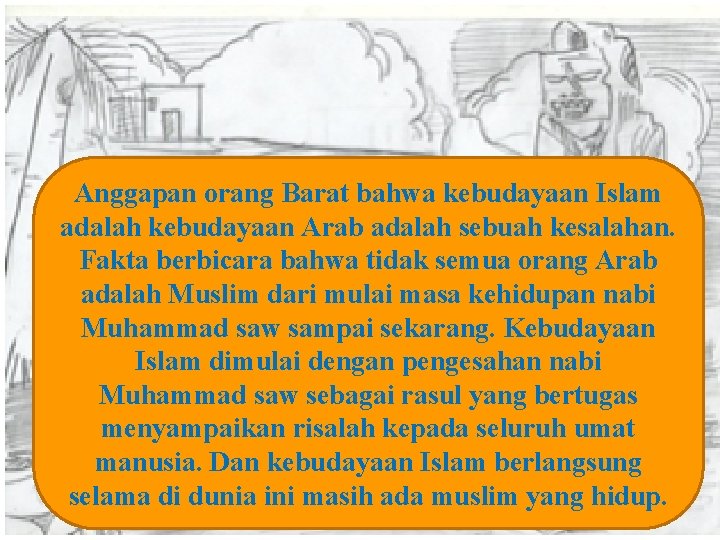 Anggapan orang Barat bahwa kebudayaan Islam
adalah kebudayaan Arab adalah sebuah kesalahan.
Fakta berbicara bahwa tidak semua orang Arab
adalah Muslim dari mulai masa kehidupan nabi
Muhammad saw sampai sekarang. Kebudayaan
Islam dimulai dengan pengesahan nabi
Muhammad saw sebagai rasul yang bertugas
menyampaikan risalah kepada seluruh umat
manusia. Dan kebudayaan Islam berlangsung
selama di dunia ini masih ada muslim yang hidup.